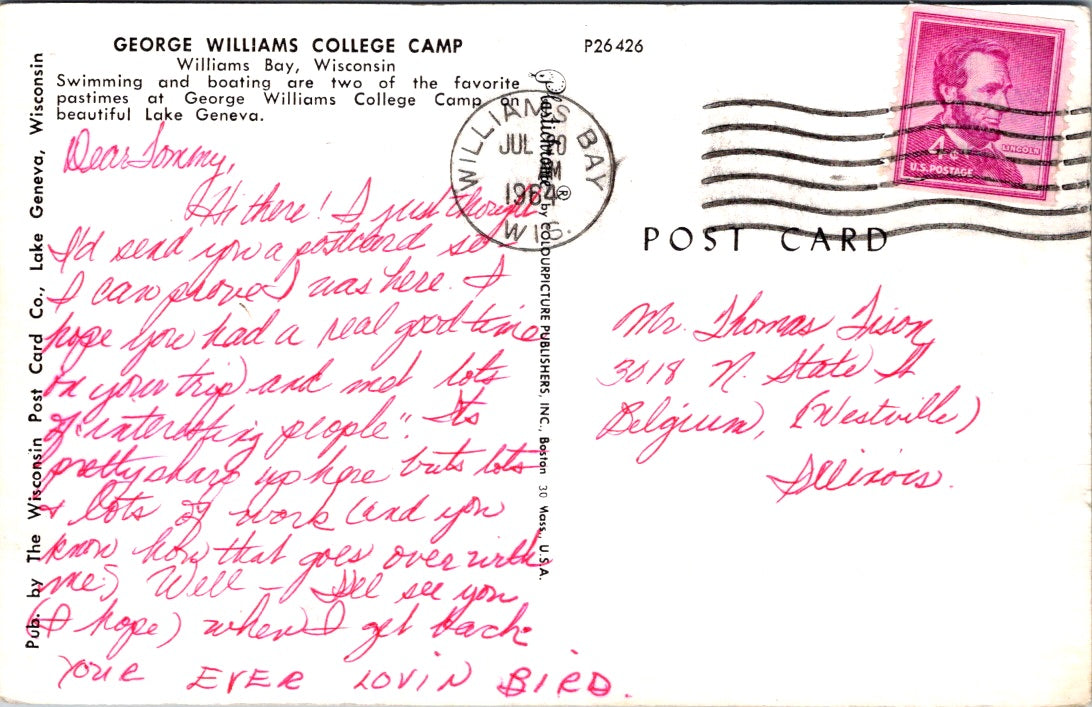 GEORGE WILLIAMS COLLEGE CAMP
Williams Bay, Wisconsin
Swimming and boating are two of the favorite
pastimes at George Williams College Camp on
beautiful Lake Geneva.
P26426
Pub. by The Wisconsin Post Card Co., Lake Geneva, Wisconsin
Plastichrome® by COLOURPICTURE PUBLISHERS, INC., Boston 30 Mass., U.S.A.
WILLIAMS BAY
JUL
PM
1964
WIS.
4¢
LINCOLN
U.S. POSTAGE
POST CARD
Dear Tommy,
Hi there! I just thought
I'd send you a postcard so
I can prove I was here. I
hope you had a real good time
on your trip and met lots
of "interesting people". Its
pretty sharp up here but its lots
& lots of work (and you
know how that goes over with
me.) Well - I'll see you
(I hope) when I get back
YOUR EVER LOVIN BIRD.
Mr. Thomas Tison
3018 N. State St
Belgium, (Westville)
Illinois.